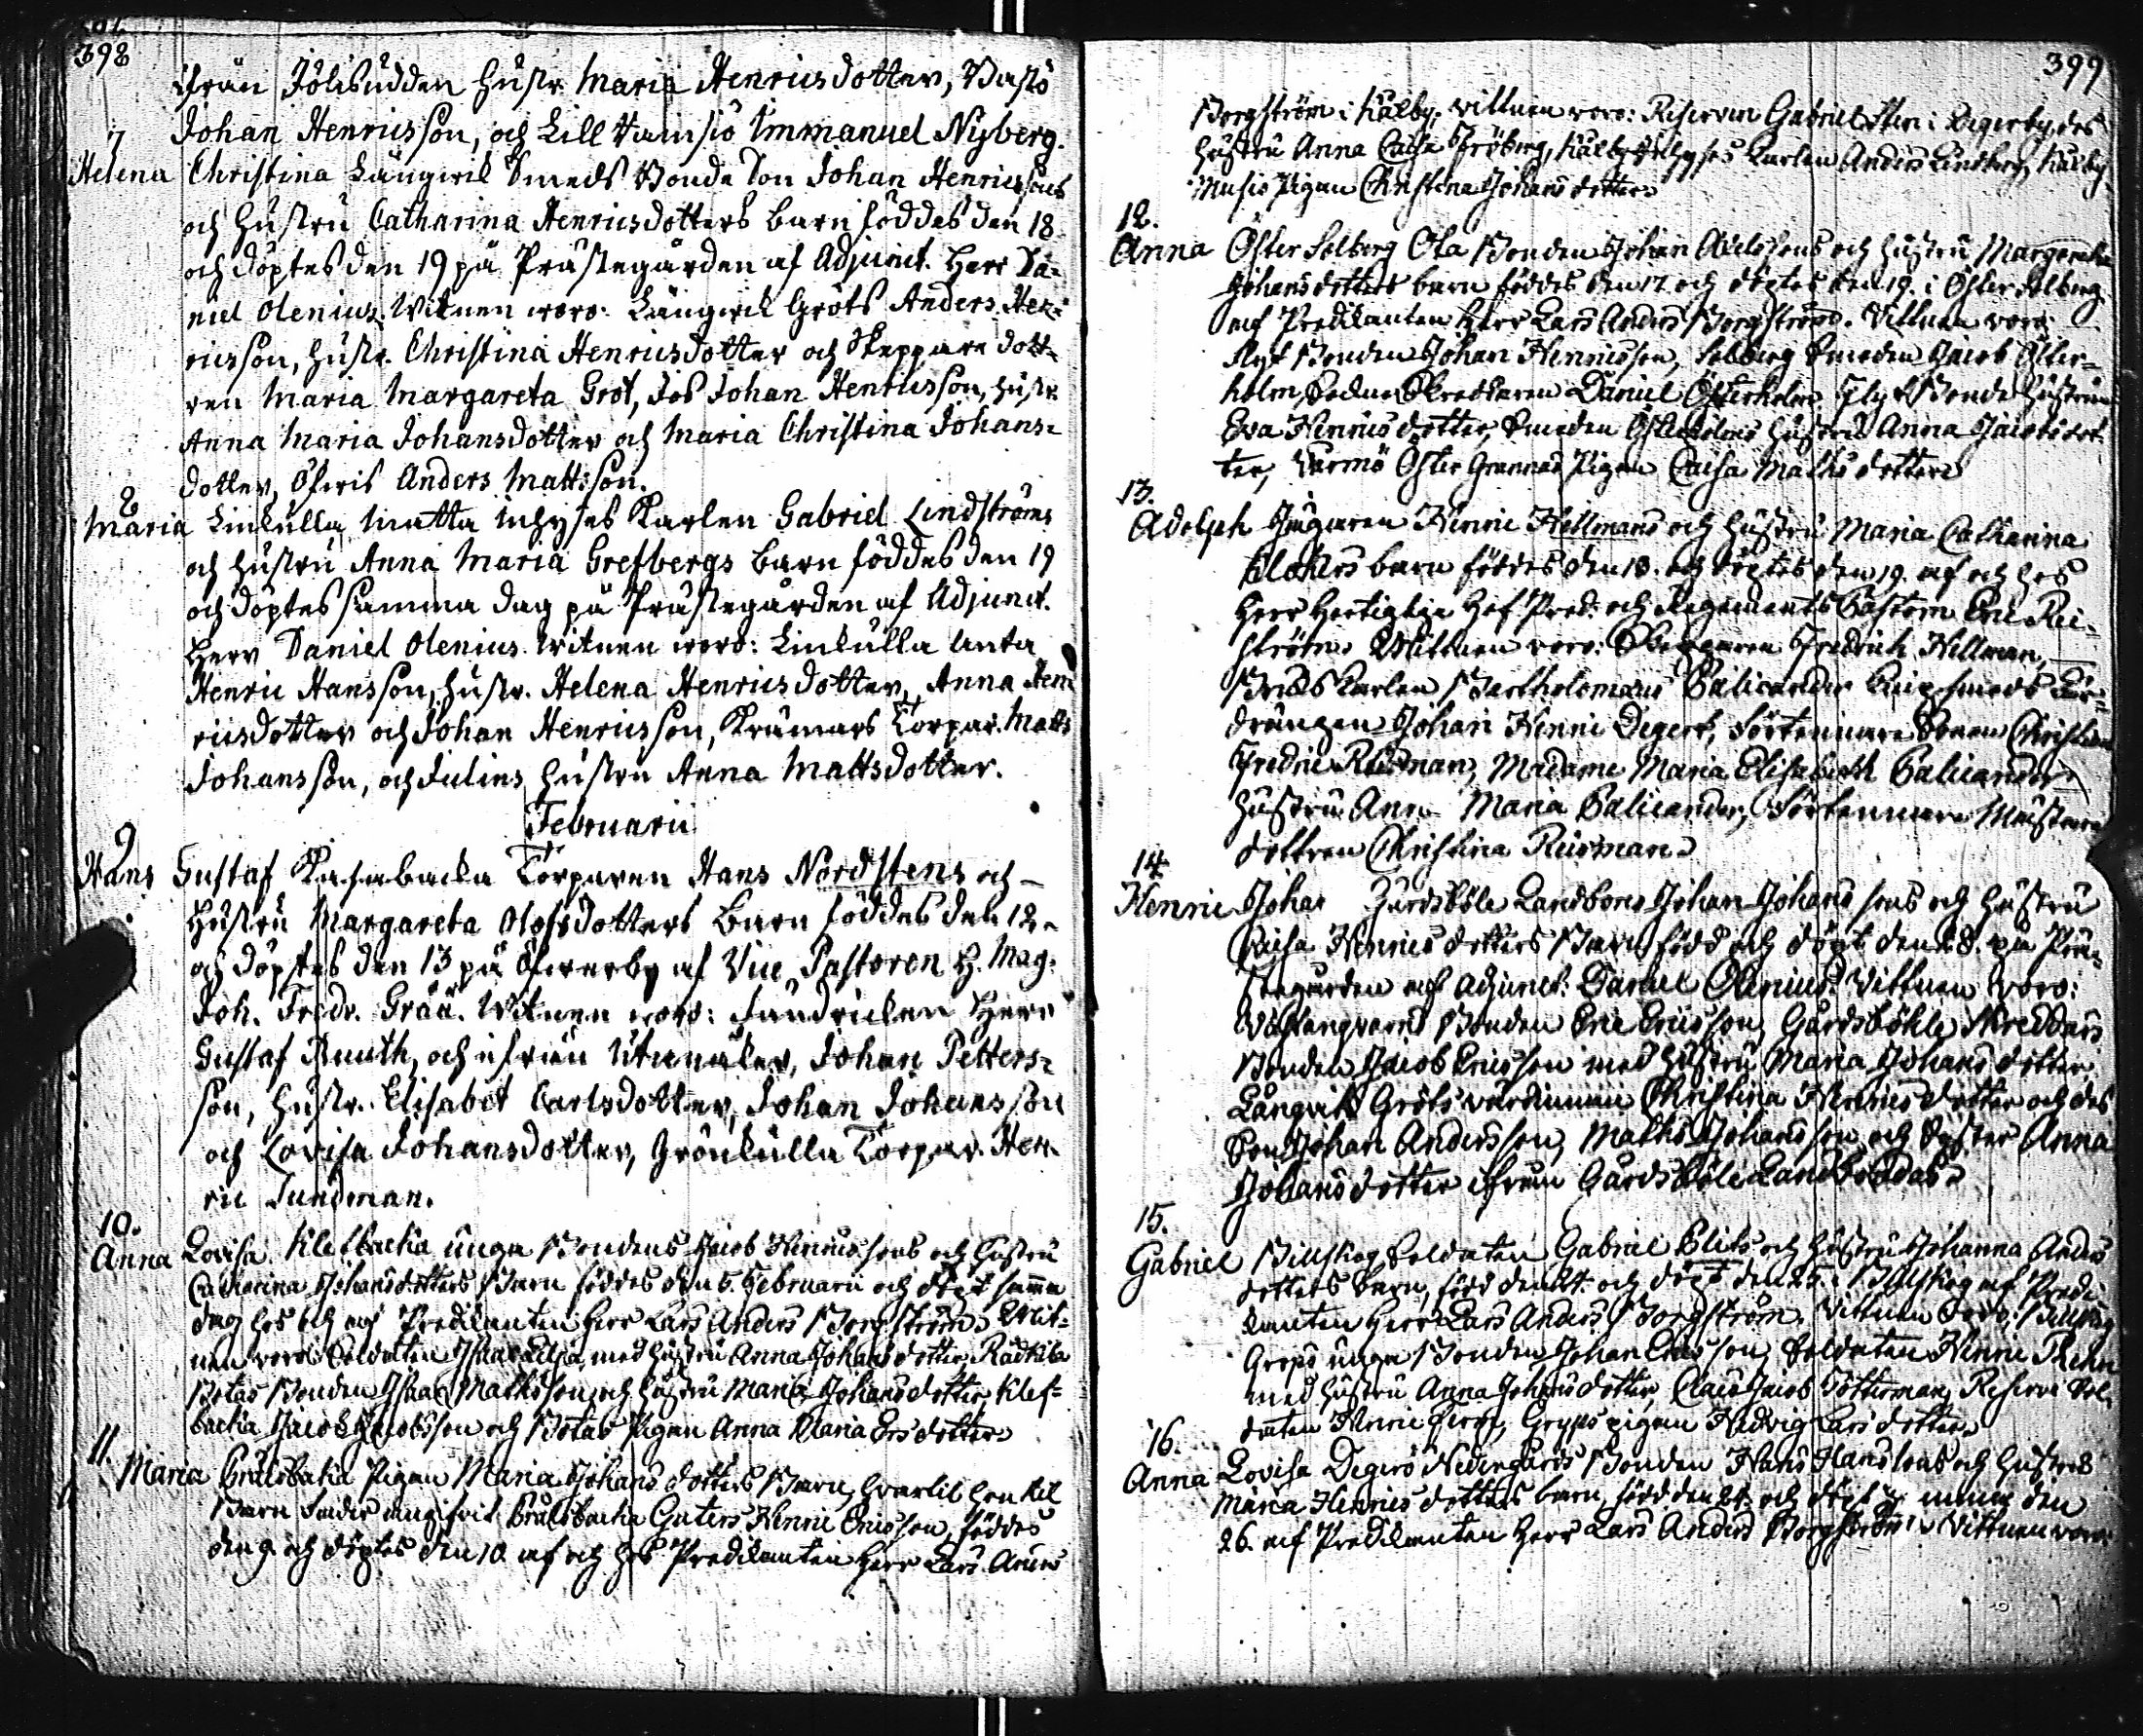 398
ifrån Jölisudden hustr. Maria Henricsdotter, Wastö
Johan Henricsson, och Lill Hamsiö Immanuel Nyberg.
7
Helena Christina Långwik Smeds Bonde Son Johan Henricssons
och hustru Catharina Henricsdotters barn föddes den 18
och döptes den 19 på Prästegården af Adjunct. Herr Da-
niel Olenius. Witnen woro: Långwik Gröts Anders Hen-
ricsson, hustr. Christina Henricsdotter och Skeppare dott-
ren Maria Margareta Gröt, Johan Henricsson, hustr.
Anna Maria Johansdotter och Maria Christina Johans-
dotter, Anders Mattsson.
8
Maria Linkulla Matta Inhyses Karlen Gabriel Lindströms
och hustru Anna Maria Grefbergs barn föddes den 19
och döptes samma dag på Prästegården af Adjunct.
Herr Daniel Olenius. Witnen woro: Linkulla Anta
Henric Hansson, hustr. Helena Henricsdotter, Anna Hen-
ricsdotter och Johan Henricsson, Krämars Torpar. Matts
Johansson, och Julins hustru Anna Mattsdotter.
Februarii
9
Hans Gustaf Kasabacka Torparen Hans Nordstens och
Hustru Margareta Olofsdotters barn föddes den 12
och döptes den 13 på Öfwerby af Vice Pastoren H. Mag.
Joh. Fredr. Gråå. Witnen woro: Fendricken Herr
Gustaf Ruuth, och ifrån Johan Petters-
son, hustr. Elisabet Carlsdotter, Johan Johansson
och Lovisa Johansdotter, Grönkulla Torpar. Hen-
ric Sundman.
10.
Anna Lovisa Klefbacka unga Bondens Jacob Henricssons och hustru
Catharina Johansdotters Barn föddes den 5. Februarii och döpt samma
dag hos och af Predikanten Herr Lars Anders Borgström. Wit-
nen woro: Soldaten Isaac Lilja med hustru Anna Johansdotter, Rackila
Botas Bonden Isaac Mathsson och hustru Maria Johansdotter, Klef-
backa Jacob Jacobsson och Botas Pigan Anna Maria Ersdotter.
11.
Maria Bråksbacka Pigan Maria Johansdotters Barn,
Barn fader Bråksbacka Gaters Henric Ericsson, föddes
den 9. och döptes den 10. af och hos Predikanten Herr Lars Anders
399
Borgström i Kälby. Wittnen woro: Reserven Gabriel Sten i Degerby, des
hustru Anna Caisa Fröberg, Kälby Inhyses Karlen Anders Lindberg, Kälby
Pigan Christina Johansdotter.
12.
Anna Öster Solberg Ola Bonden Johan Axelssons och hustru Margaretha
Johansdotters barn föddes den 17. och döptes den 19. i Öster Solberg
af Predikanten Herr Lars Anders Borgström. Wittnen woro:
Flyt Bonden Johan Henricsson, Solberg Smeden Jacob Öster-
holm, Skreddaren Daniel Österholm, Flyt Bonde hustrun
Eva Henricsdotter, Smeden Österholms hustru Anna Jacobsdot-
ter, Wärmö Öster Grannas Pigan Caisa Mathsdotter.
13.
Adolph Jägaren Henric Hellmans och hustru Maria Catharina
barn föddes den 13. och döptes den 19. af och hos
Herr Hertiglige Hof Pred: och Regements Pastorn Eric Rei-
ström. Wittnen woro: Fredrich Hellman,
Karlen Bartholomæus Palicander
drängen Johan Henric Degert, Christian
Fredric Reisman, Madame Maria Elisabeth Palicander
hustru Anna Maria Palicander,
dottren Christina Reisman.
14.
Henric Johan Gårdsböle Landbons Johan Johanssons och hustru
Caisa Henricsdotters Barn född och döpt den 18. på Prä-
stegården af Adjunct: Daniel Olenius. Wittnen woro:
Bonden Eric Ericsson, Gårdsböhle Skreddars
Bonden Jacob Ericsson med hustru Maria Johansdotter,
Långvik Gröts wärdinnan Christina Henricsdotter och des
Son Johan Andersson, Maths Johansson och Syster Anna
Johansdotter ifrån Gårdsböle Landboddas.
15.
Gabriel Billskog Soldaten Gabriel Blits och hustru Johanna Anders
dotters barn, född den 24. och döpt den 25. i Billskog af Predi-
kanten Herr Lars Anders Borgström. Wittnen woro: Billskog
Greps unga Bonden Johan Ericsson, Soldaten Henric Rehn
med hustru Anna Johansdotter, Jacob Götterman, Reserve Sol-
daten Henric Grepps pigan Hedvig Larsdotter.
16.
Anna Lovisa Degerö Nedergårds Bonden Hans Hanssons och hustrus
Maria Henricsdotters barn, född den 24. och döpt den
26. af Predikanten Herr Lars Anders Borgström. Wittnen woro: